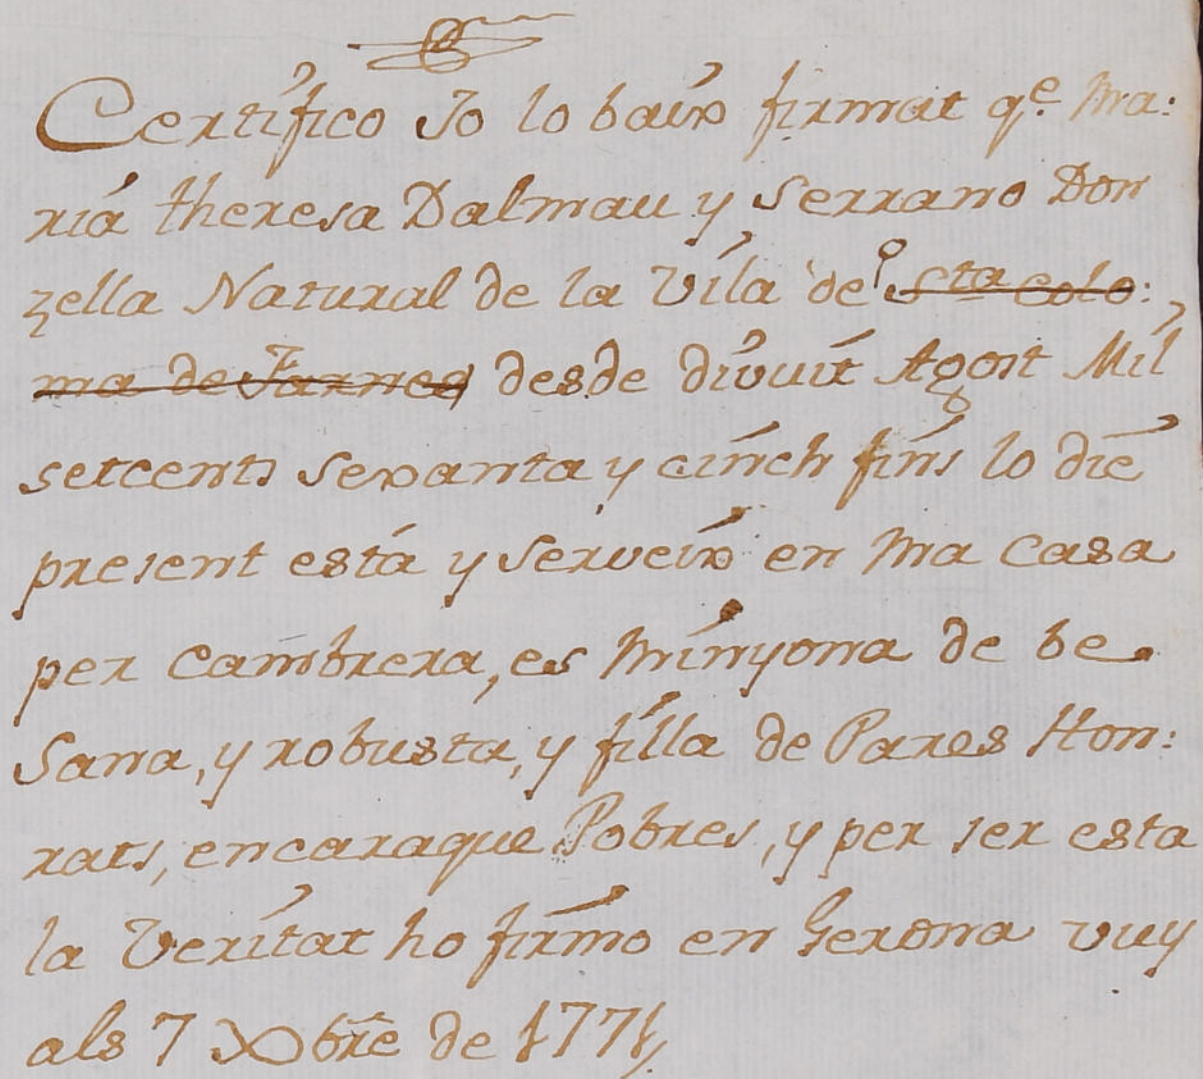 Certifico Jo lo baix firmat q.e Ma:
ria theresa Dalmau y Serrano Don
zella Natural de la Vila de Sta Colo:
ma de Farnes desde divuit Agost Mil
setcents sexanta y cinch fins lo die
present está y serveix en ma casa
per cambrera, es minyona de be
sana, y robusta, y filla de Pares Hon:
rats, encaraque Pobres, y per ser esta
la veritat ho firmo en Gerona vuy
als 7 Xbre de 1771,